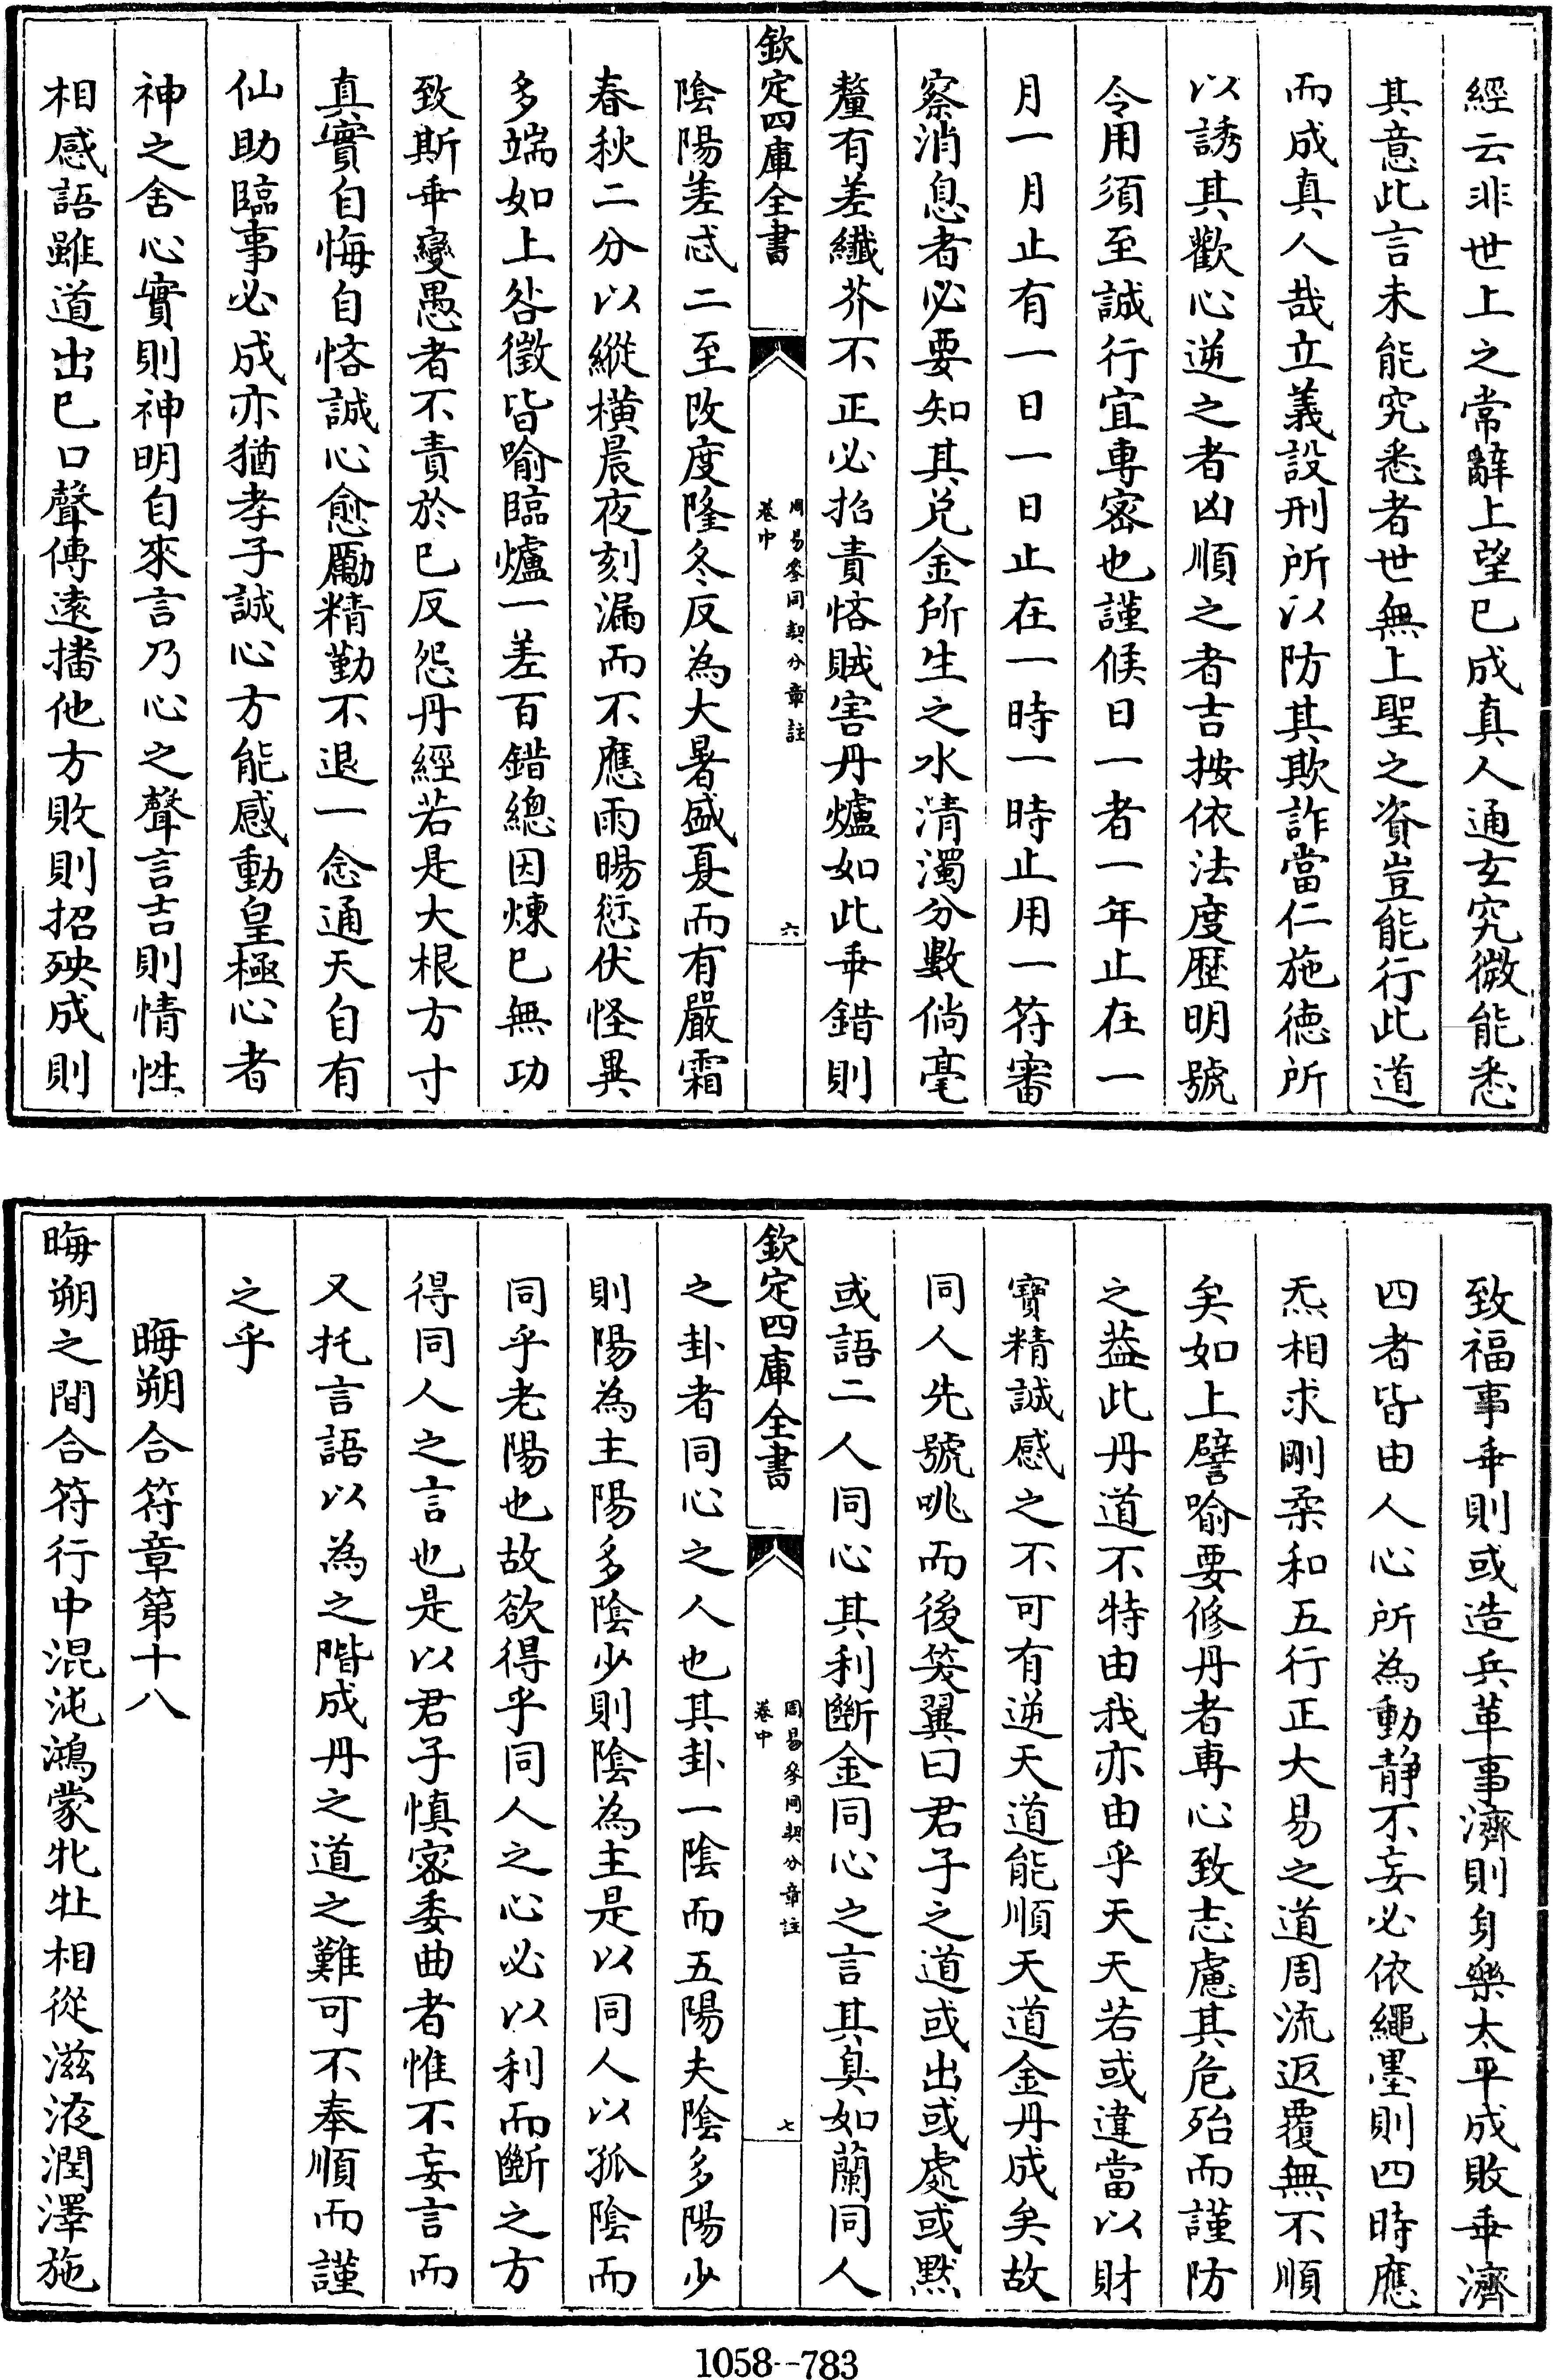 經云非世上之常辭上望已成真人通玄究微能悉
其意此言未能究悉者世無上聖之資豈能行此道
而成真人哉立義設刑所以防其欺詐當仁施德所
以誘其歡心逆之者凶順之者吉按依法度歷明號
令用須至誠行宜專密也謹候日一者一年止在一
月一月止有一日一日止在一時一時止用一符審
察消息者必要知其兌金所生之水清濁分數倘毫
釐有差纖芥不正必招責悋賊害丹爐如此乖錯則
欽定四庫全書
周易參同契分章註
卷中
六
陰陽差忒二至改度隆冬反為大暑盛夏而有嚴霜
春秋二分以縱橫晨夜刻漏而不應雨暘愆伏怪異
多端如上咎徵皆喻臨爐一差百錯總因煉已無功
致斯乖變愚者不責於已反怨丹經若是大根方寸
真實自悔自悋誠心愈勵精勤不退一念通天自有
仙助臨事必成亦猶孝子誠心方能感動皇極心者
神之舍心實則神明自來言乃心之聲言吉則情性
相感語雖道出已口聲傳遠播他方敗則招殃成則
致福事乖則或造兵革事濟則身樂太平成敗乖濟
四者皆由人心所為動靜不妄必依繩墨則四時應
炁相求剛柔和五行正大易之道周流返覆無不順
矣如上譬喻要修丹者專心致志慮其危殆而謹防
之葢此丹道不特由我亦由乎天天若或違當以財
寶精誠感之不可有逆天道能順天道金丹成矣故
同人先號咷而後笑翼曰君子之道或出或處或默
或語二人同心其利斷金同心之言其臭如蘭同人
欽定四庫全書
周易參同契分章註
卷中
七
之卦者同心之人也其卦一陰而五陽夫陰多陽少
則陽為主陽多陰少則陰為主是以同人以孤陰而
同乎老陽也故欲得乎同人之心必以利而斷之方
得同人之言也是以君子慎密委曲者惟不妄言而
又托言語以為之階成丹之道之難可不奉順而謹
之乎
晦朔合符章第十八
晦朔之間合符行中混沌鴻蒙牝牡相從滋液潤澤施
1058--783